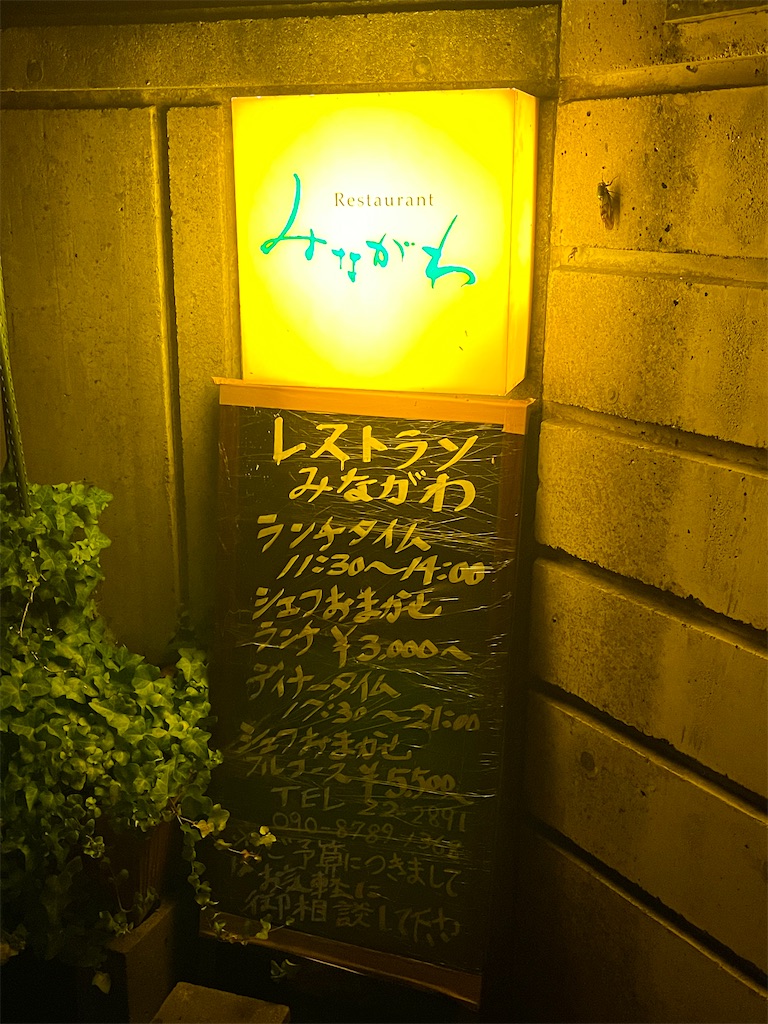 Restaurant
みながわ
レストラン
みながわ
ランチタイム
11:30〜14:00
シェフおまかせ
ランチ ¥3.000〜
ディナータイム
17:30〜21:00
シェフおまかせ
フルコース ¥5.500〜
TEL 22-2891
090-8789-1368
※ご予算につきまして
はお気軽に
御相談して下さい